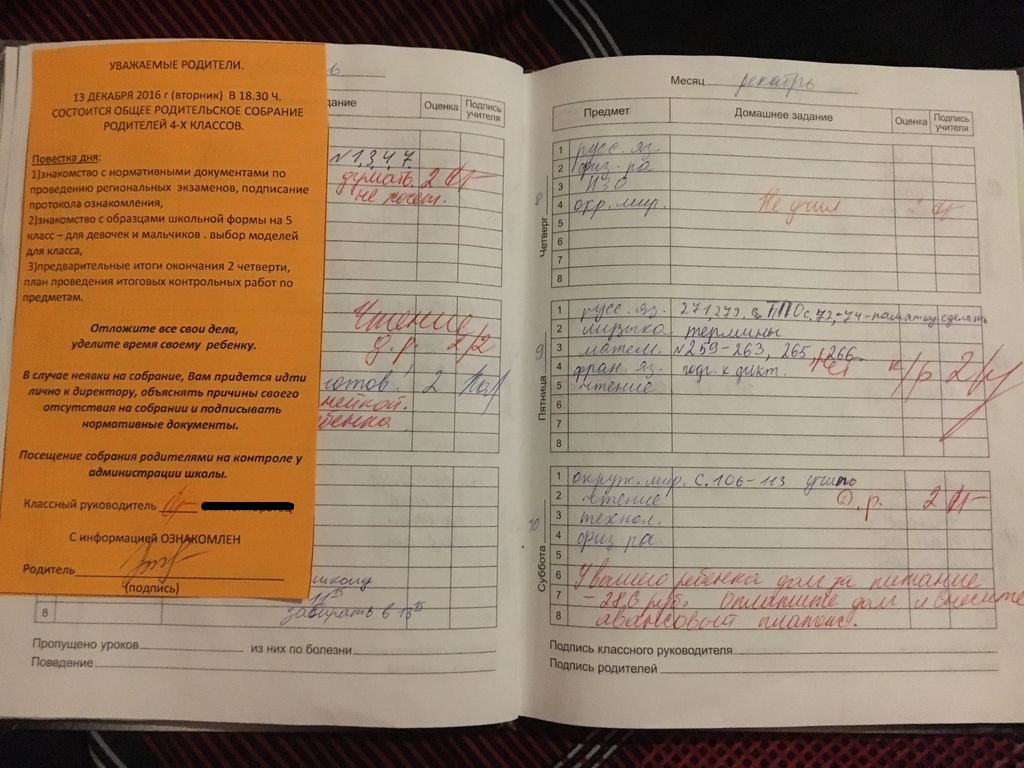 УВАЖАЕМЫЕ РОДИТЕЛИ.
13 ДЕКАБРЯ 2016 г (вторник) В 18.30 Ч.
СОСТОИТСЯ ОБЩЕЕ РОДИТЕЛЬСКОЕ СОБРАНИЕ
РОДИТЕЛЕЙ 4-Х КЛАССОВ.
Повестка дня:
1)знакомство с нормативными документами по
проведению региональных экзаменов, подписание
протокола ознакомления,
2)знакомство с образцами школьной формы на 5
класс – для девочек и мальчиков . выбор моделей
для класса,
3)предварительные итоги окончания 2 четверти,
план проведения итоговых контрольных работ по
предметам.
Отложите все свои дела,
уделите время своему ребенку.
В случае неявки на собрание, Вам придется идти
лично к директору, объяснять причины своего
отсутствия на собрании и подписывать
нормативные документы.
Посещение собрания родителями на контроле у
администрации школы.
Классный руководитель
С информацией ОЗНАКОМЛЕН
Родитель
(подпись)
дание Оценка Подпись учителя
№1,3,4,7.
думать 2
не хочет.
Чтение
д.р. 2/2
готов! 2
нейкой.
бенка
школу
8 забирать в 13 15
Пропущено уроков из них по болезни
Поведение
Месяц декабрь
Предмет Домашнее задание Оценка Подпись учителя
Четверг 8
1 русс. яз.
2 физ-ра
3 ИЗО
4 окр. мир. Не учил 2
5
6
7
8
Пятница 9
1 русс. яз. 271,279. ТПО с. 72,-74-памятку сделать
2 музыка термины
3 матем. №259-263, 265, 266
4 фран. яз. подг. к дикт. Нет к/р 2
5 чтение
6
7
8
Суббота 10
1 окруж. мир. С. 106-113 учить
2 чтение д.р. 2
3 технол.
4 физ-ра
5
6 У вашего ребенка долг за питание
7 - 286 руб. Оплатите долг и внесите
8 авансовый платеж.
Подпись классного руководителя
Подпись родителей